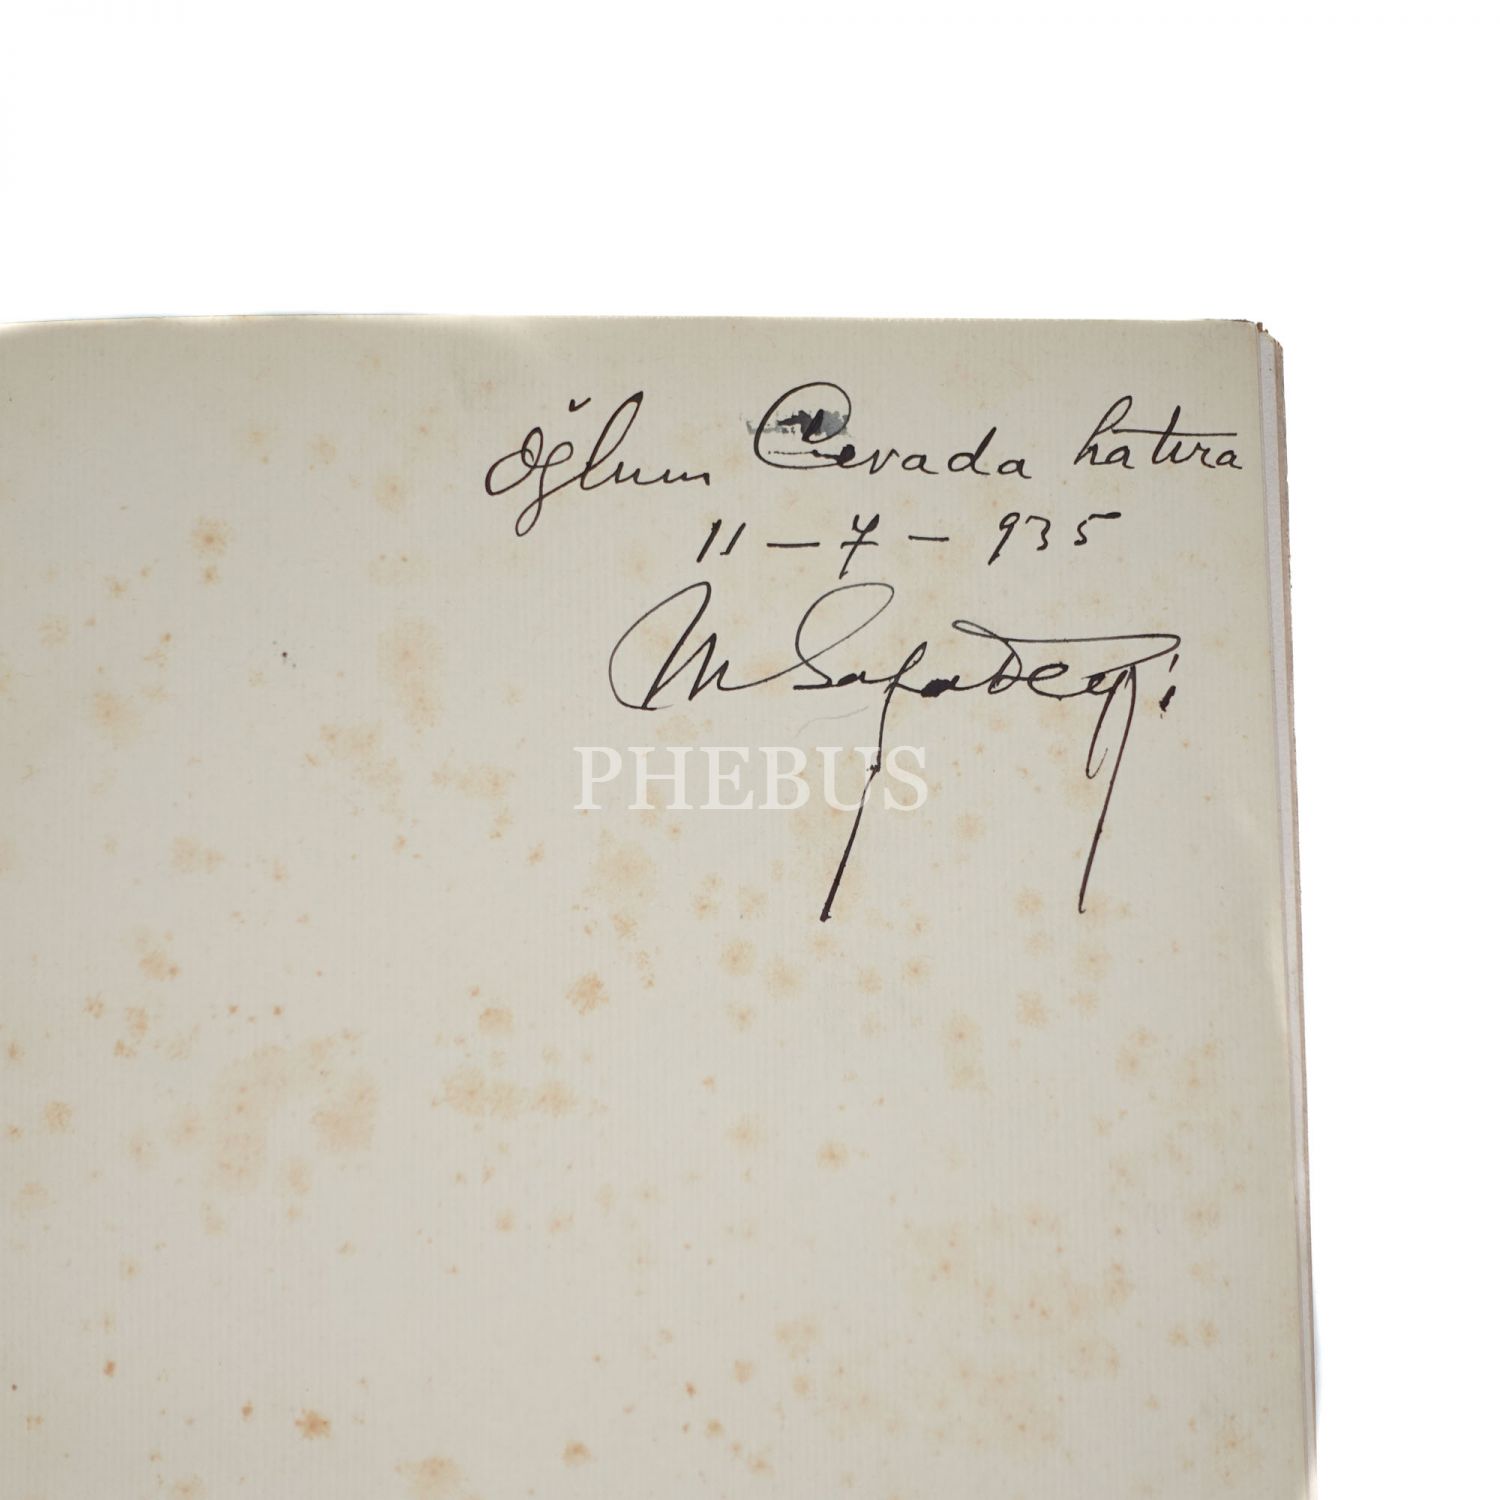 Oğlum Cevada hatıra
11 - 7 - 935
M Safa
PHEBUS